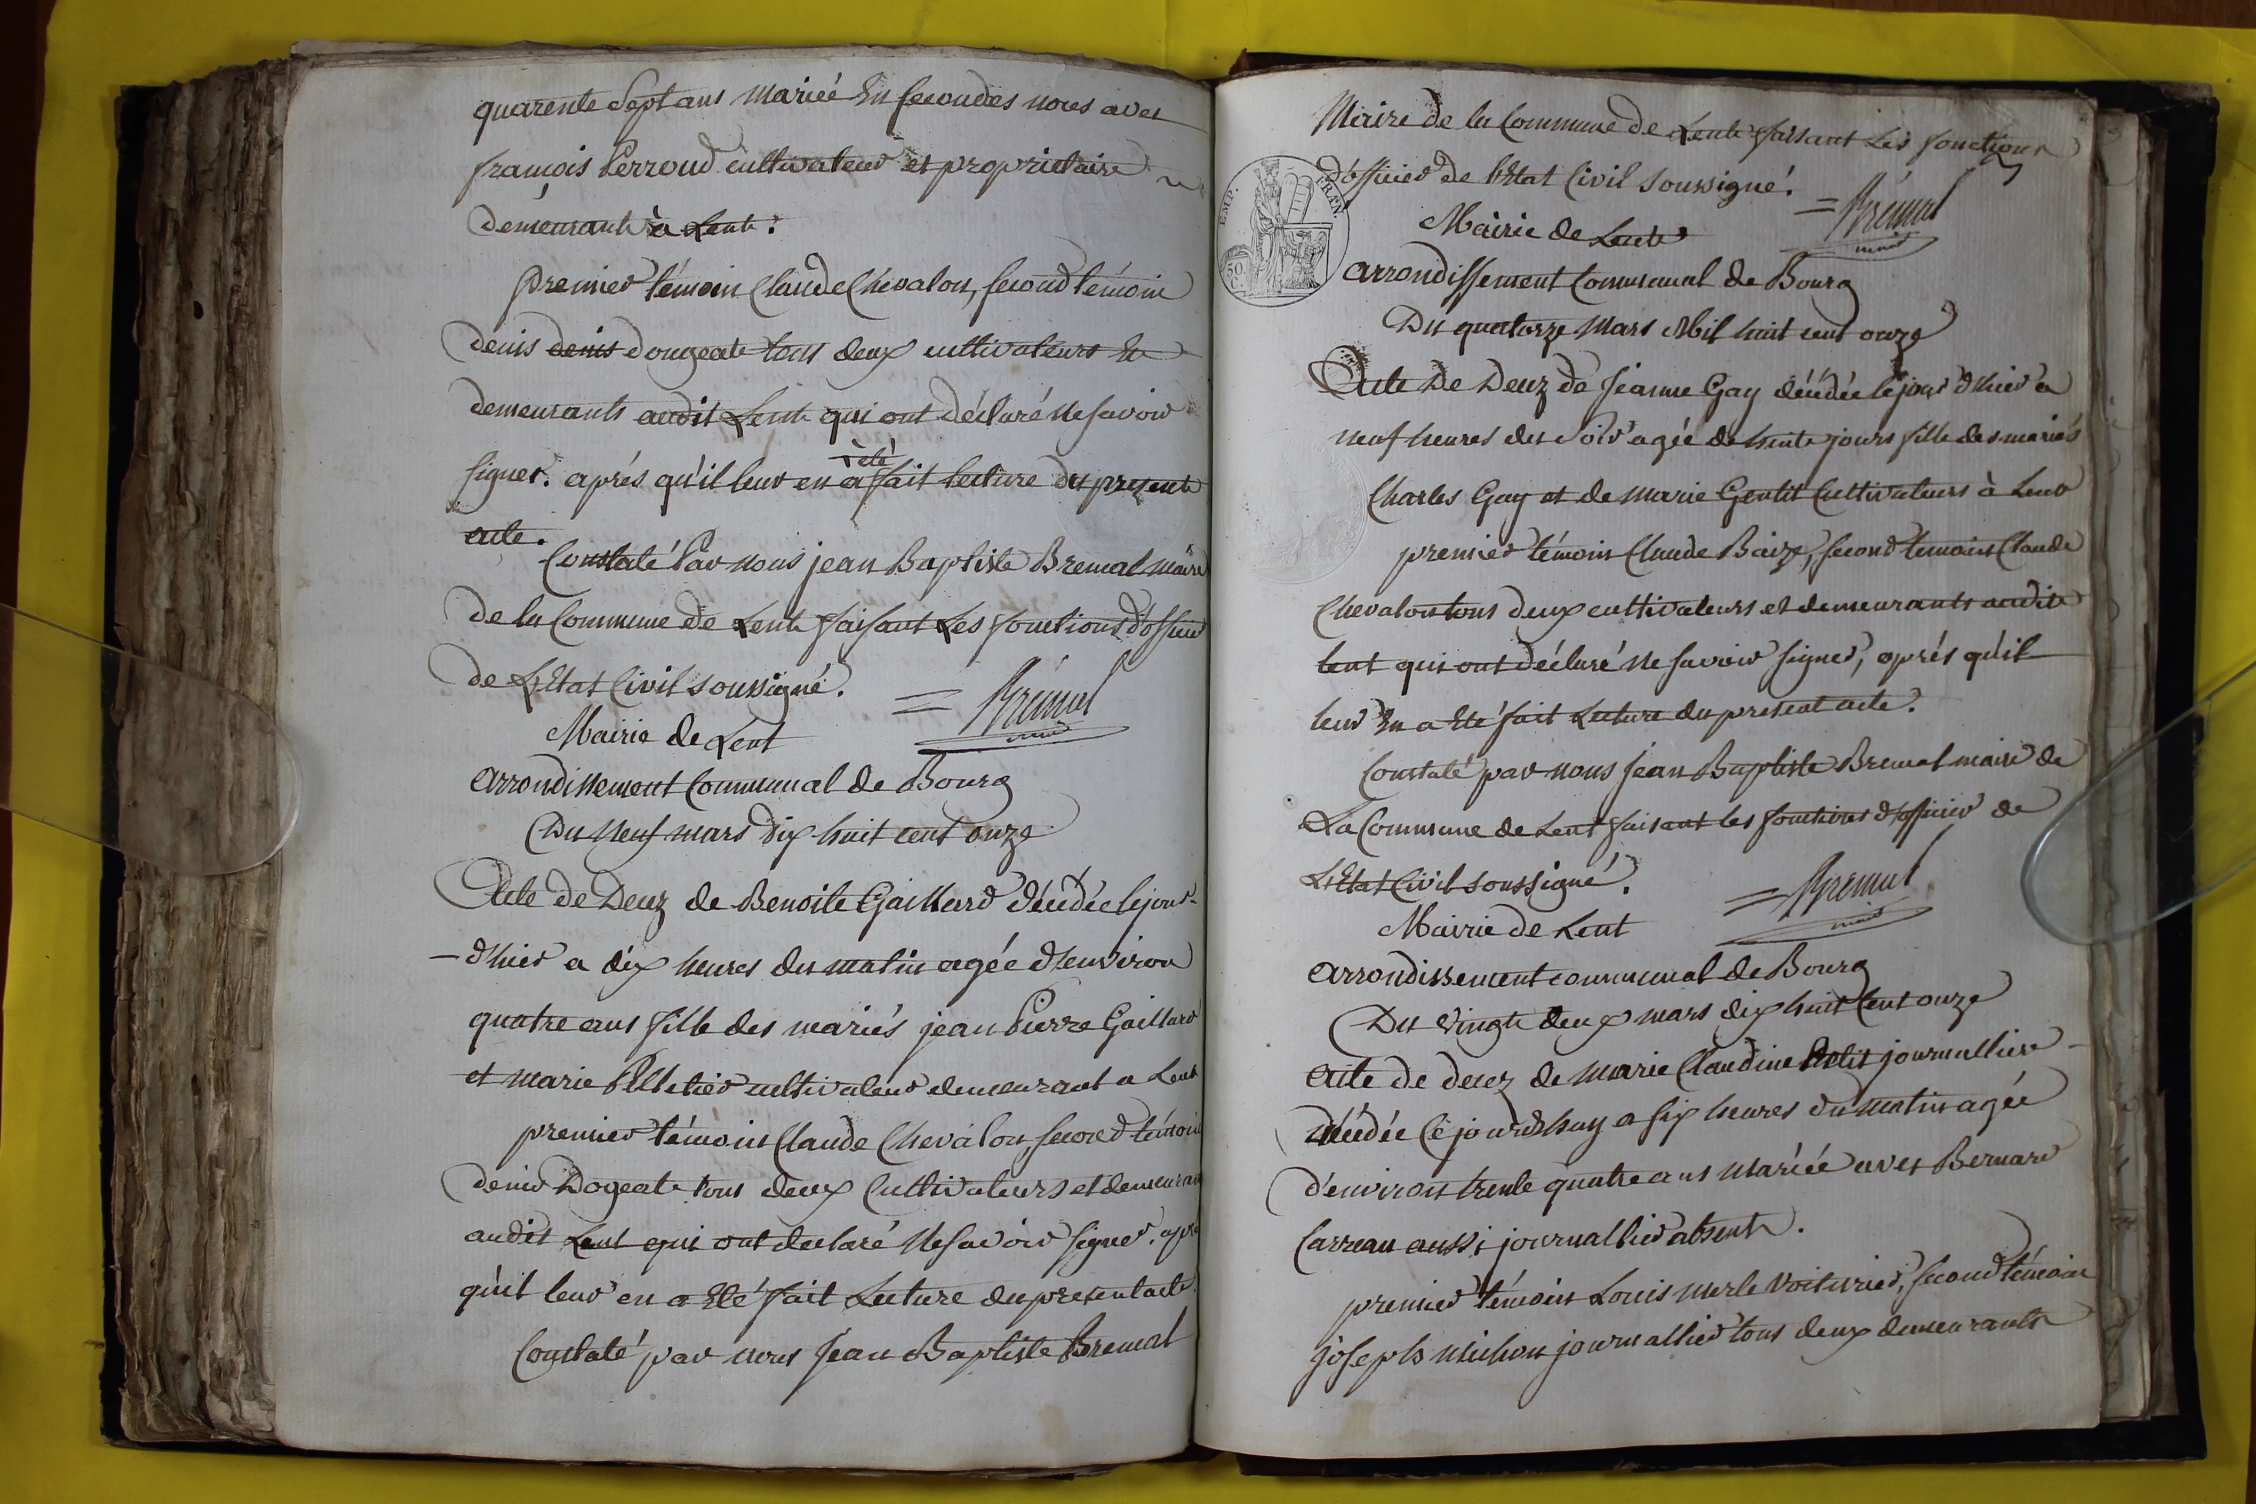 quarente Sept ans mariée En secondes noces avec
françois Perroud cultivateur et propriétaire
demeurant à Lent.
premier témoin Claude Chevalon, second témoin
denis denis dougeat tous deux cultivateurs et
demeurants audit Lent qui ont déclaré ne savoir
signer. aprés qu'il leur en a été fait lecture du present
acte.
Constaté Par nous jean Baptiste Bremal maire
de la Commune de Lent faisant Les fonctions d'officier
de L'Etat Civil soussigné. = Brémal
maire
Mairie de Lent
arrondissement Communal de Bourg
Du Neuf mars dix huit cent onze
Acte de Decez de Benoite Gaillard décédée le jour
d'hier a dix heures du matin agée d'environ
quatre ans fille des mariés jean Pierre Gaillard
et marie Pelletier cultivateur demeurant a Lent
premier témoin Claude Chevalon, second témoin
denis Dogeat tous deux Cultivateurs et demeurant
audit Lent qui ont declaré Ne savoir signer. apré
qu'il leur en a Eté fait Lecture du present acte.
Constaté par nous Jean Baptiste Bremal
Maire de la Commune de Lent faisant Les fonctions
d'officier de l'Etat Civil soussigné. = Brémal
maire
EMP. FRAN.
50 C.
Mairie de Lent
arrondissement Communal de Bourg
Du quatorze Mars Mil huit cent onze
Acte De Decez de Jeanne Gay décédée le jour d'hier a
neuf heures du Soir agée de huit jours fille des mariés
Charles Gay et de marie Gentil Cultivateurs à Lent
premier témoin Claude Baize, second temoin Claude
Chevalon tous deux cultivateurs et demeurants audit
lent qui ont déclaré Ne savoir signer, aprés qu'il
leur En a Eté fait Lecture du present acte.
Constaté par nous Jean Baptiste Bremal maire de
La Commune de Lent faisant les fonctions d'officier de
L'Etat Civil soussigné. = Bremal
maire
Mairie de Lent
arrondissement communal de Bourg
Du vingt deux mars dix huit Cent onze
acte de decez de marie Claudine Petit journalliere
décédée Ce jourd'huy a six heures du matin agée
d'environ trente quatre ans mariée avec Bernard
Carreau aussi journallier absent.
premier témoin Louis merle voiturier, second témoin
joseph michon journallier tous deux demeurants